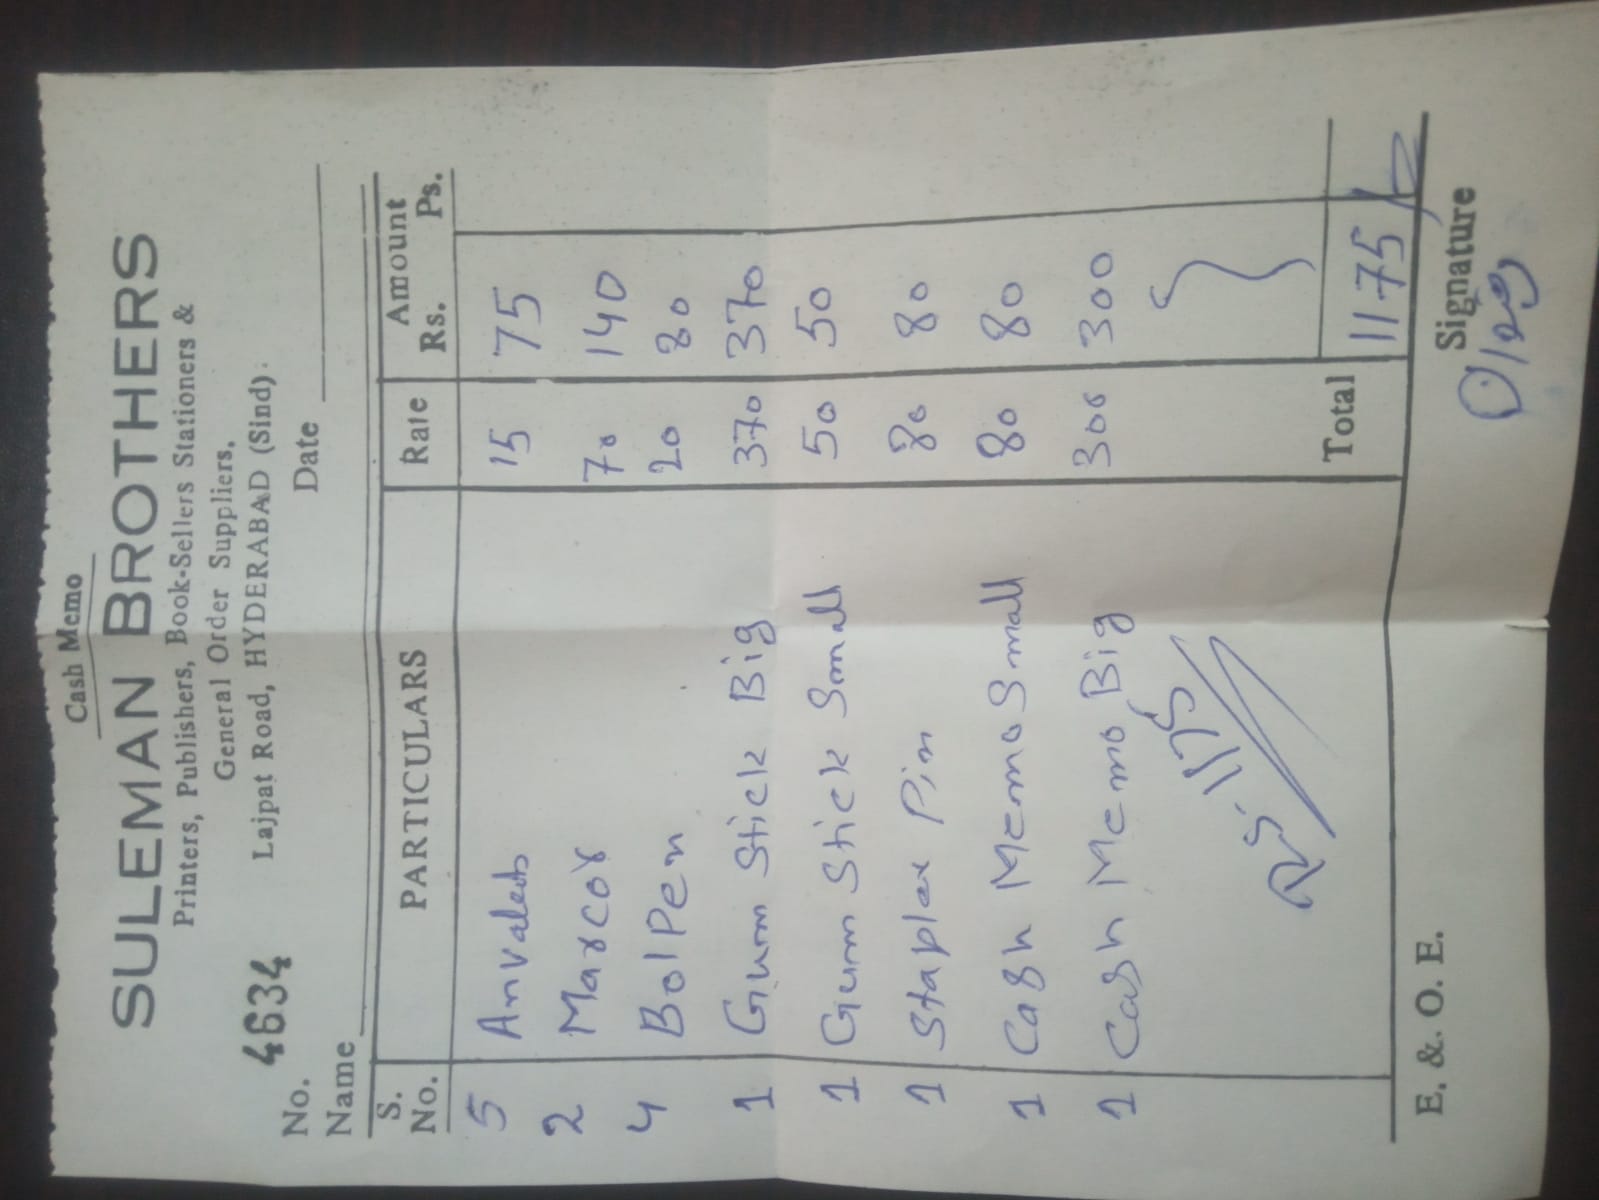 Cash Memo
SULEMAN BROTHERS
Printers, Publishers, Book-Sellers Stationers &
General Order Suppliers.
Lajpat Road, HYDERABAD (Sind).
No. 4634 Date
Name
S. No. PARTICULARS Rate Amount Rs. Ps.
5 Anvaleb 15 75
2 Marcor 70 140
4 Bolpen 20 80
1 Gum Stick Big 370 370
1 Gum Stick Small 50 50
1 Stapler Pin 80 80
1 Cash Memo Small 80 80
1 Cash Memo Big 300 300
Rs. 1175
Total 1175
E. &. O. E. Signature